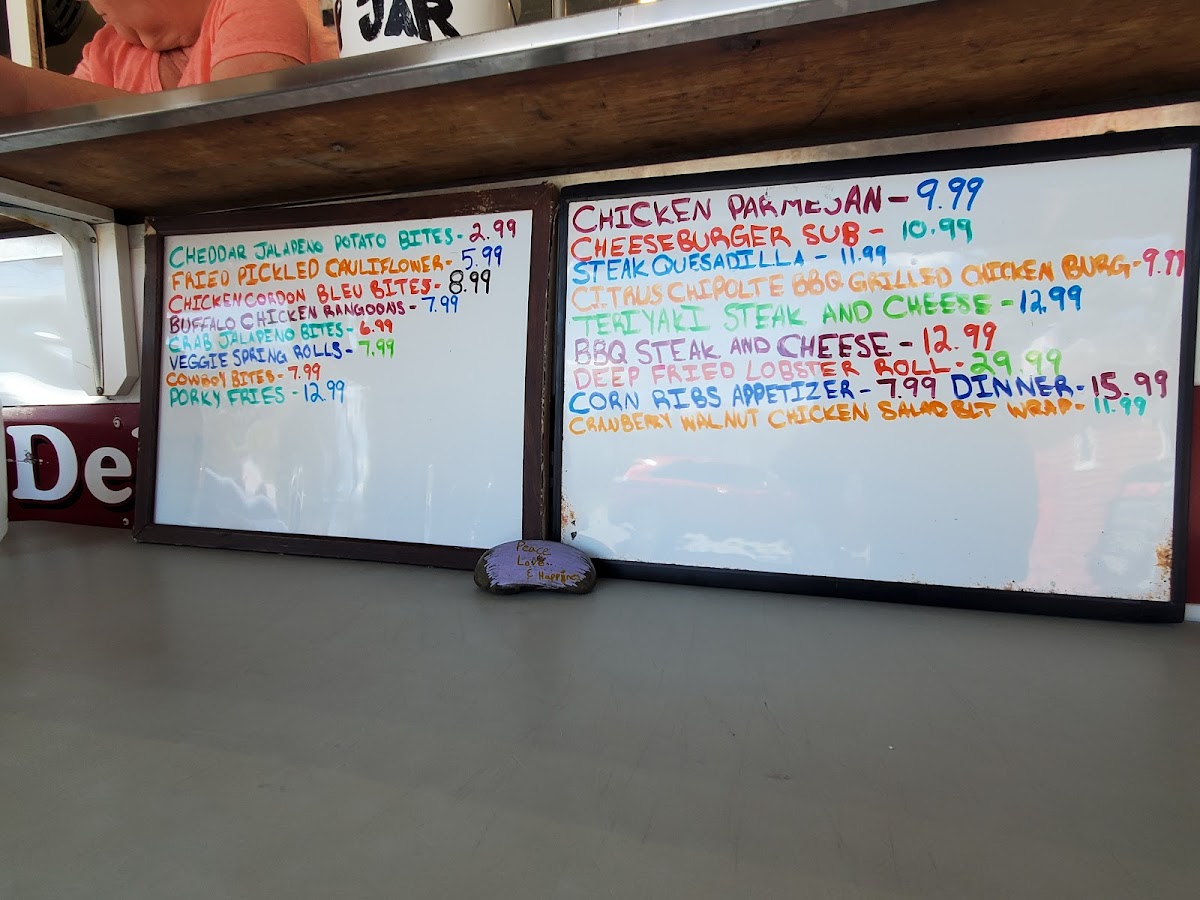 JAR
CHEDDAR JALAPENO POTATO BITES - 2.99
FRIED PICKLED CAULIFLOWER - 5.99
CHICKEN CORDON BLEU BITES - 8.99
BUFFALO CHICKEN RANGOONS - 7.99
CRAB JALAPENO BITES - 6.99
VEGGIE SPRING ROLLS - 7.99
COWBOY BITES - 7.99
PORKY FRIES - 12.99
CHICKEN PARMESAN - 9.99
CHEESEBURGER SUB - 10.99
STEAK QUESADILLA - 11.99
CITRUS CHIPOLTE BBQ GRILLED CHICKEN BURG - 9.99
TERIYAKI STEAK AND CHEESE - 12.99
BBQ STEAK AND CHEESE - 12.99
DEEP FRIED LOBSTER ROLL - 29.99
CORN RIBS APPETIZER - 7.99 DINNER - 15.99
CRANBERRY WALNUT CHICKEN SALAD BLT WRAP - 11.99
De
Peace
Love..
& Happines